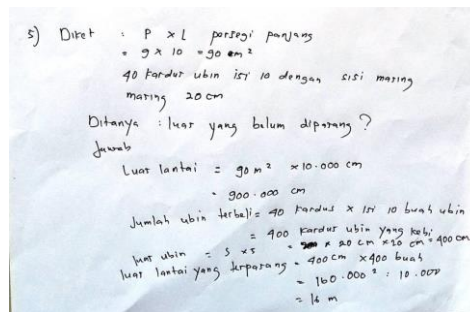 5) Diket : P x L persegi panjang
= 9 x 10 = 90 m²
40 kardus ubin isi 10 dengan sisi masing
masing 20 cm
Ditanya : luas yang belum dipasang ?
Jawab
Luas lantai = 90 m² x 10.000 cm
= 900.000 cm
Jumlah ubin terbeli = 40 kardus x isi 10 buah ubin
= 400 kardus ubin yang
luas ubin = S x S = 20 cm x 20 cm = 400 cm
luas lantai yang terpasang = 400 cm x 400 buah
= 160.000² : 10.000
= 16 m